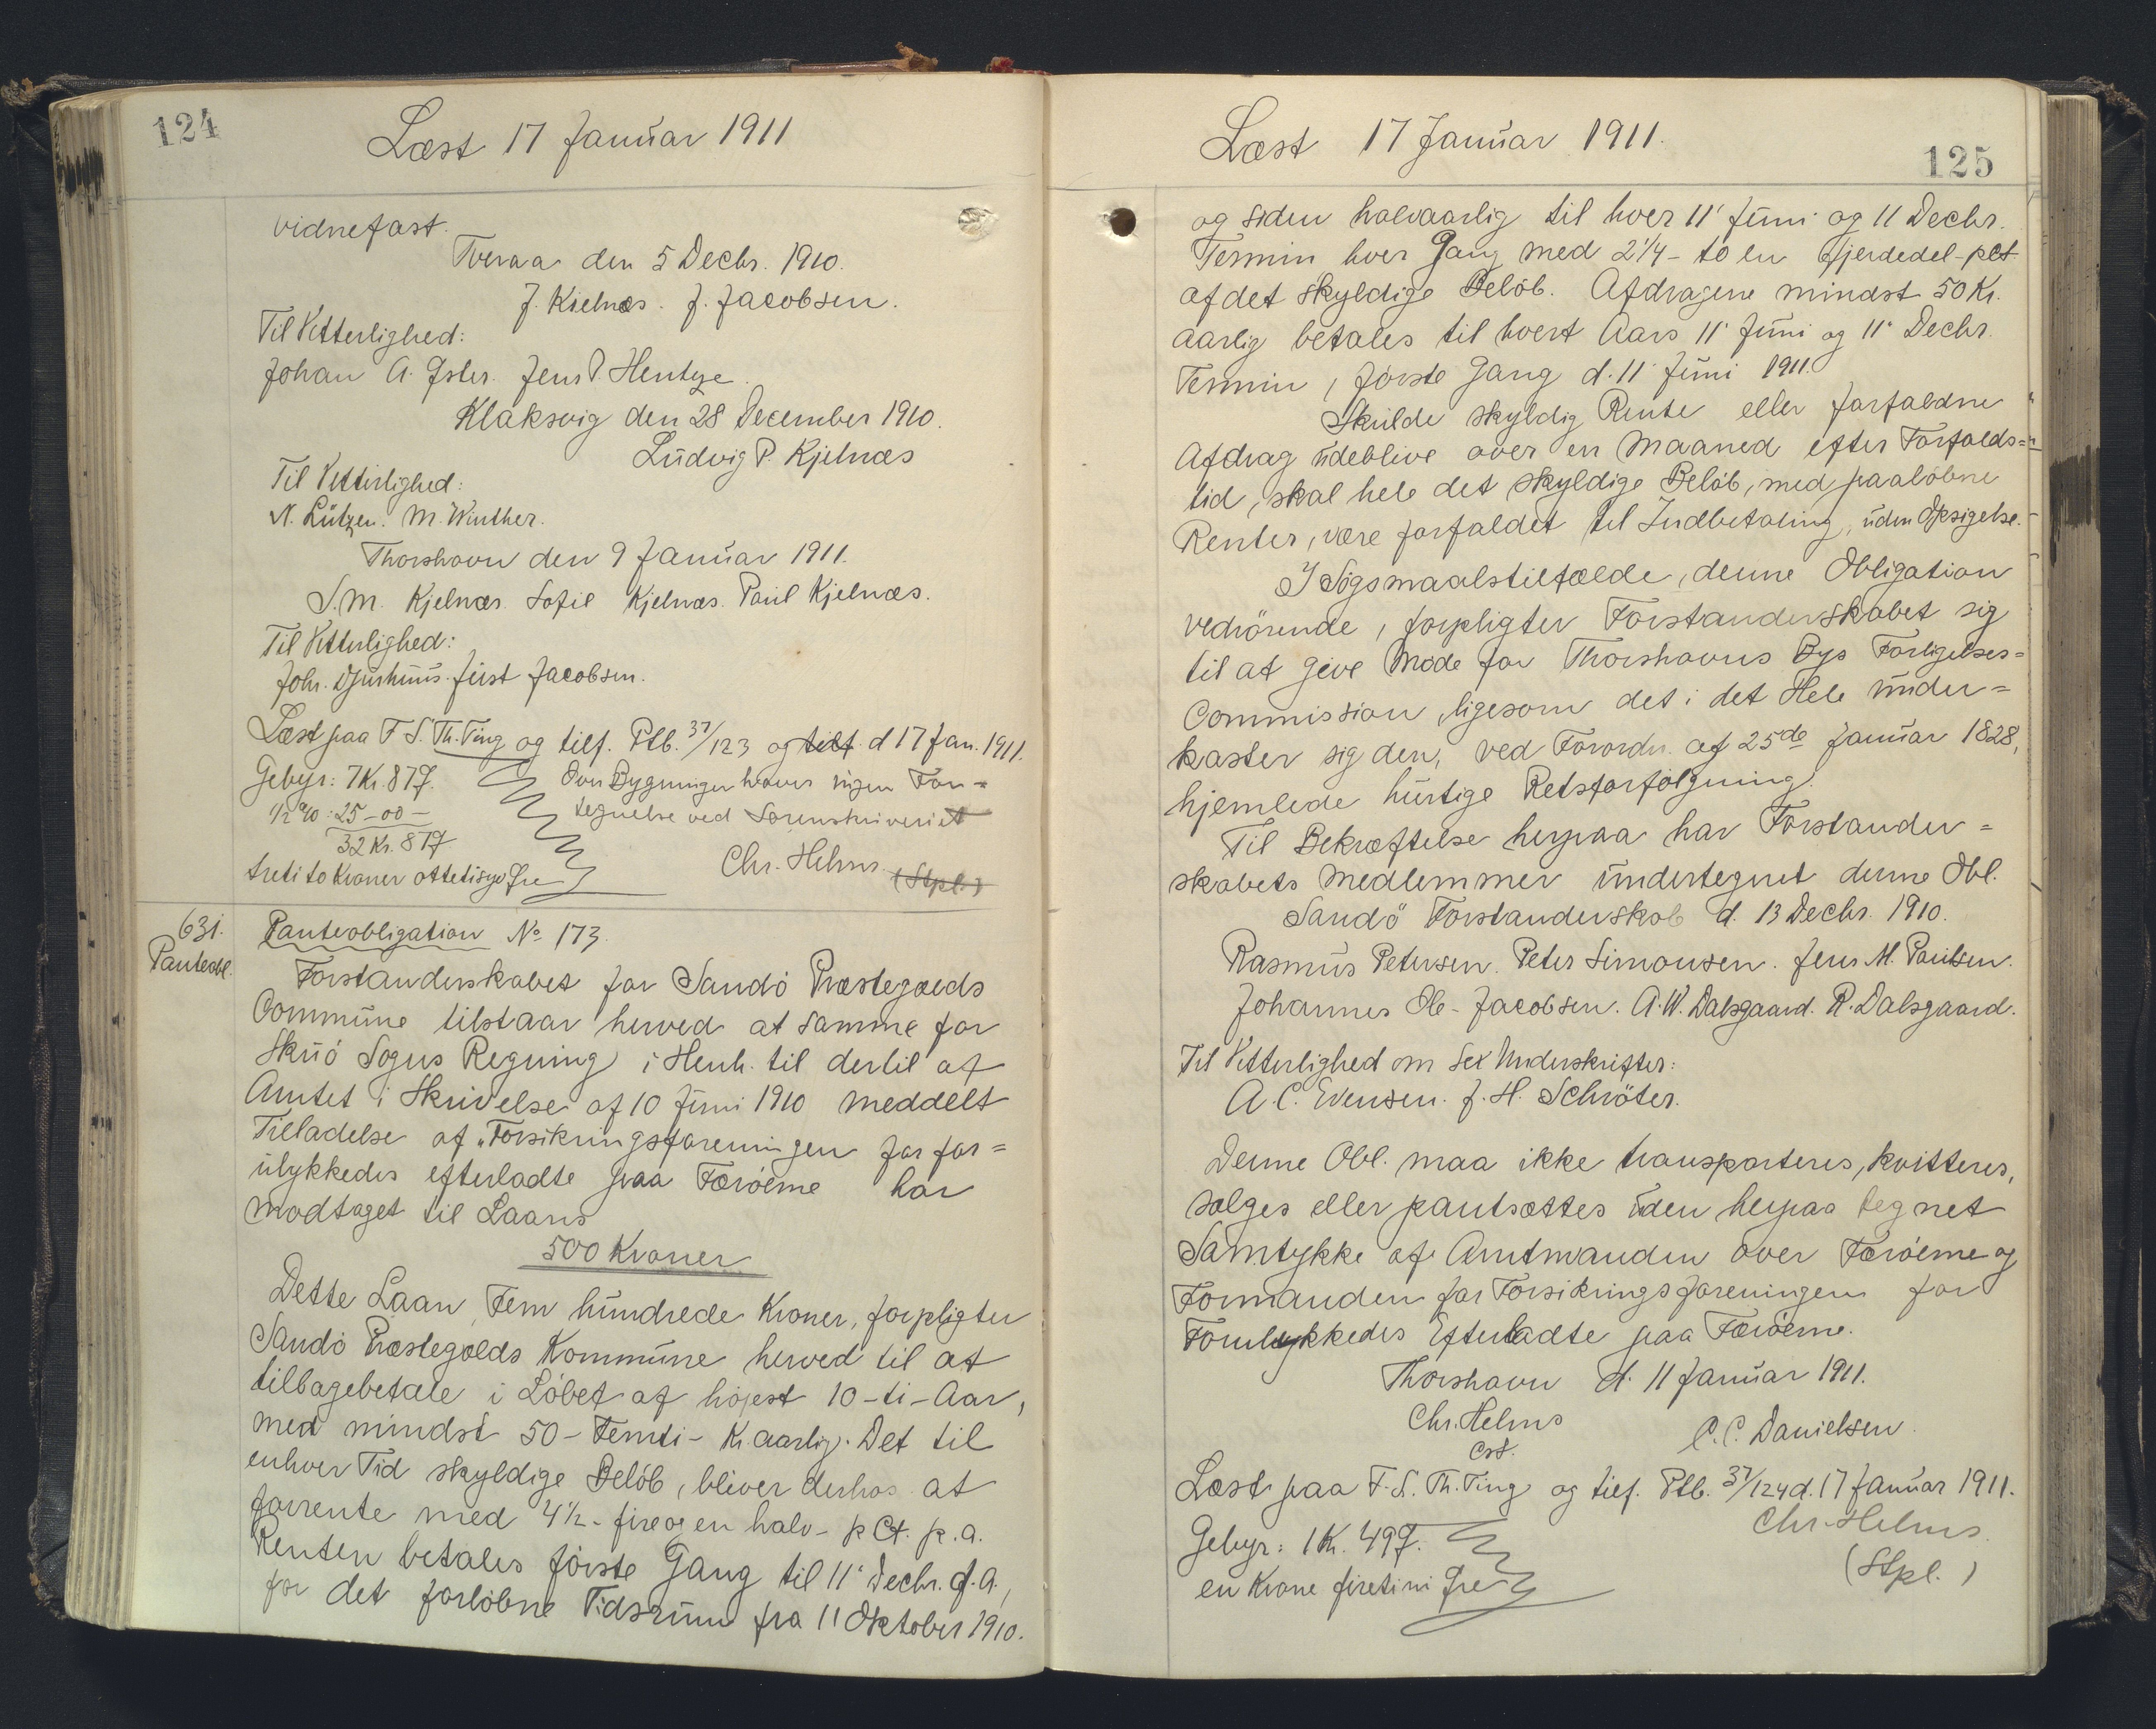 124
Læst 17 Januar 1911
vidnefast.
Tveraa den 5 Decbr. 1910.
J. Kielnæs. J. Jacobsen.
Til Vitterlighed:
Johan A. Øster. Jens P. Hentze.
Klaksvig den 28 December 1910.
Ludvig P. Kjelnæs
Til Vitterlighed:
N. Lützen. M. Winther.
Thorshavn den 9 Januar 1911.
S.M. Kjelnæs. Sofie Kjelnæs. Paul Kjelnæs.
Til Vitterlighed:
Johs. Djurhuus. Just Jacobsen.
Læst paa F. S. Th. Ting og tilf. Ptb. 37/123 og tilf. d 17 Jan. 1911.
Gebyr: 7 Kr. 87 Ø. Over Bygningen haves ingen For-
1/2 %: 25 - 00 - tegnelse ved Sorenskriveriet
32 Kr. 87 Ø
tretito Kroner ottetisyv Øre Chr. Helms. (Stpl.)
631. Panteobligation No 173.
Panteobl. Forstanderskabet for Sandö Præstegælds
Commune tilstaar herved at samme for
Skuö Sogns Regning i Henh. til dertil af
Amtet i Skrivelse af 10 Juni 1910 meddelt
Tilladelse af „Forsikringsforeningen for for=
ulykkedes efterladte paa Færöerne har
modtaget til Laans
500 Kroner
Dette Laan, Fem hundrede Kroner, forpligter
Sandö Præstegælds Kommune herved til at
tilbagebetale i Löbet af höjest 10 - ti - Aar,
med mindst 50 - Femti - Kr. aarlig. Det til
enhver Tid skyldige Belöb, bliver derhos at
forrente med 4 1/2 - fire og en halv - p Ct. p. a.
Renten betales förste Gang til 11' Decbr. d. A.,
for det forlöbne Tidsrum fra 11 Oktober 1910.
Læst 17 Januar 1911.
125
og siden halvaarlig til hver 11' Juni og 11 Decbr.
Termin hver Gang med 2 1/4 - to en fjerdedel - pct
af det skyldige Belöb. Afdragene mindst 50 Kr.
aarlig betales til hvert Aars 11' Juni og 11' Decbr.
Termin, förste Gang d. 11' Juni 1911.
Skulde skyldig Rente eller forfaldne
Afdrag udeblive over en Maaned efter Forfalds=
tid, skal hele det skyldige Belöb, med paalöbne
Renter, være forfaldet til Indbetaling, uden Opsigelse.
I Sögsmaalstilfælde, denne Obligation
vedrörende, forpligter Forstanderskabet sig
til at give Möde for Thorshavns Bys Forligelses=
Commission, ligesom det i det Hele under=
kaster sig den, ved Forordn. af 25de Januar 1828,
hjemlede hurtige Retsforfölgning.
Til Bekræftelse herpaa har Forstander=
skabets Medlemmer undertegnet denne Obl.
Sandö Forstanderskab d. 13 Decbr. 1910.
Rasmus Petersen. Peter Simonsen. Jens M. Paulsen.
Johannes Ole - Jacobsen. A. W. Dalsgaard. R. Dalsgaard.
Til Vitterlighed om sex Underskrifter:
A. C. Evensen. J. H. Schröter.
Denne Obl. maa ikke transporteres, kvitteres,
sælges eller pantsættes uden herpaa tegnet
Samtykke af Amtmanden over Færöerne og
Formanden for Forsikringsforeningen for
Forulykkedes Efterladte paa Færöerne.
Thorshavn d. 11 Januar 1911.
Chr. Helms C. C. Danielsen
cst.
Læst paa F. S. Th. Ting og tilf. Ptb. 37/124 d. 17 Januar 1911.
Gebyr: 1 Kr. 49 Ø. Chr. Helms.
en Krone firetini Øre (Stpl.)